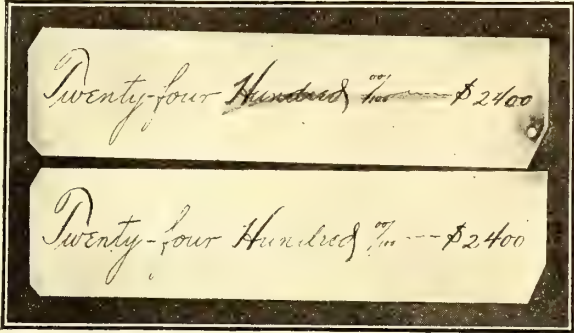 Twenty-four Hundred 00/100 ---- $2400
Twenty-four Hundred 00/100 --- $2400